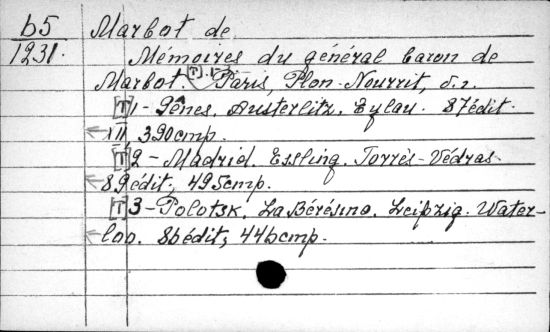 b5 Marbot de
1231. Mémoires du général baron de
Marbot. [T].1-3 Paris, Plon-Nourrit, s.d.
[T]1- Gênes, Austerlitz, Eylau. 87édit.
XII, 390cmp.
[T]2 - Madrid. Essling. Torrès-Védras
89édit., 495cmp.
[T]3-Polotsk, La Bérésina. Leipzig. Water-
loo. 86édit; 446cmp.